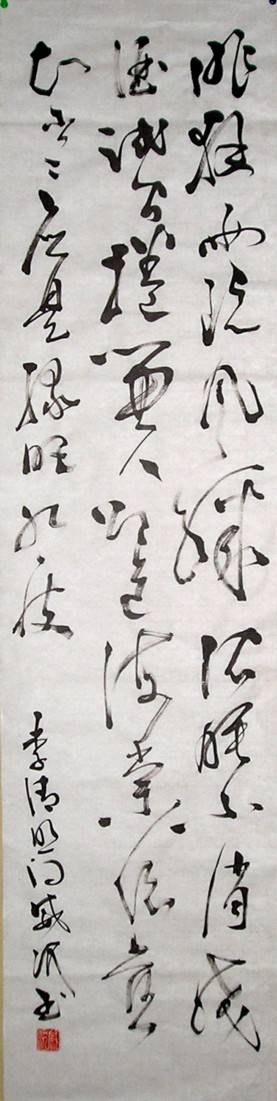 昨夜雨疏风骤浓睡不消残
酒试问捲帘人却道海棠依旧
知否知否应是绿肥红瘦
李清照词